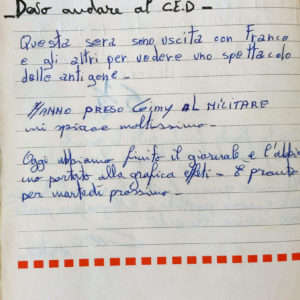 Devo andare al C.E.D -
Questa sera sono uscita con Franco
e gli altri per vedere uno spettacolo
delle antigone -
HANNO PRESO AL MILITARE
mi spiace moltissimo -
Oggi abbiamo finito il giornale e l'abbia
mo portato alla grafica - È pronto
per martedì prossimo -